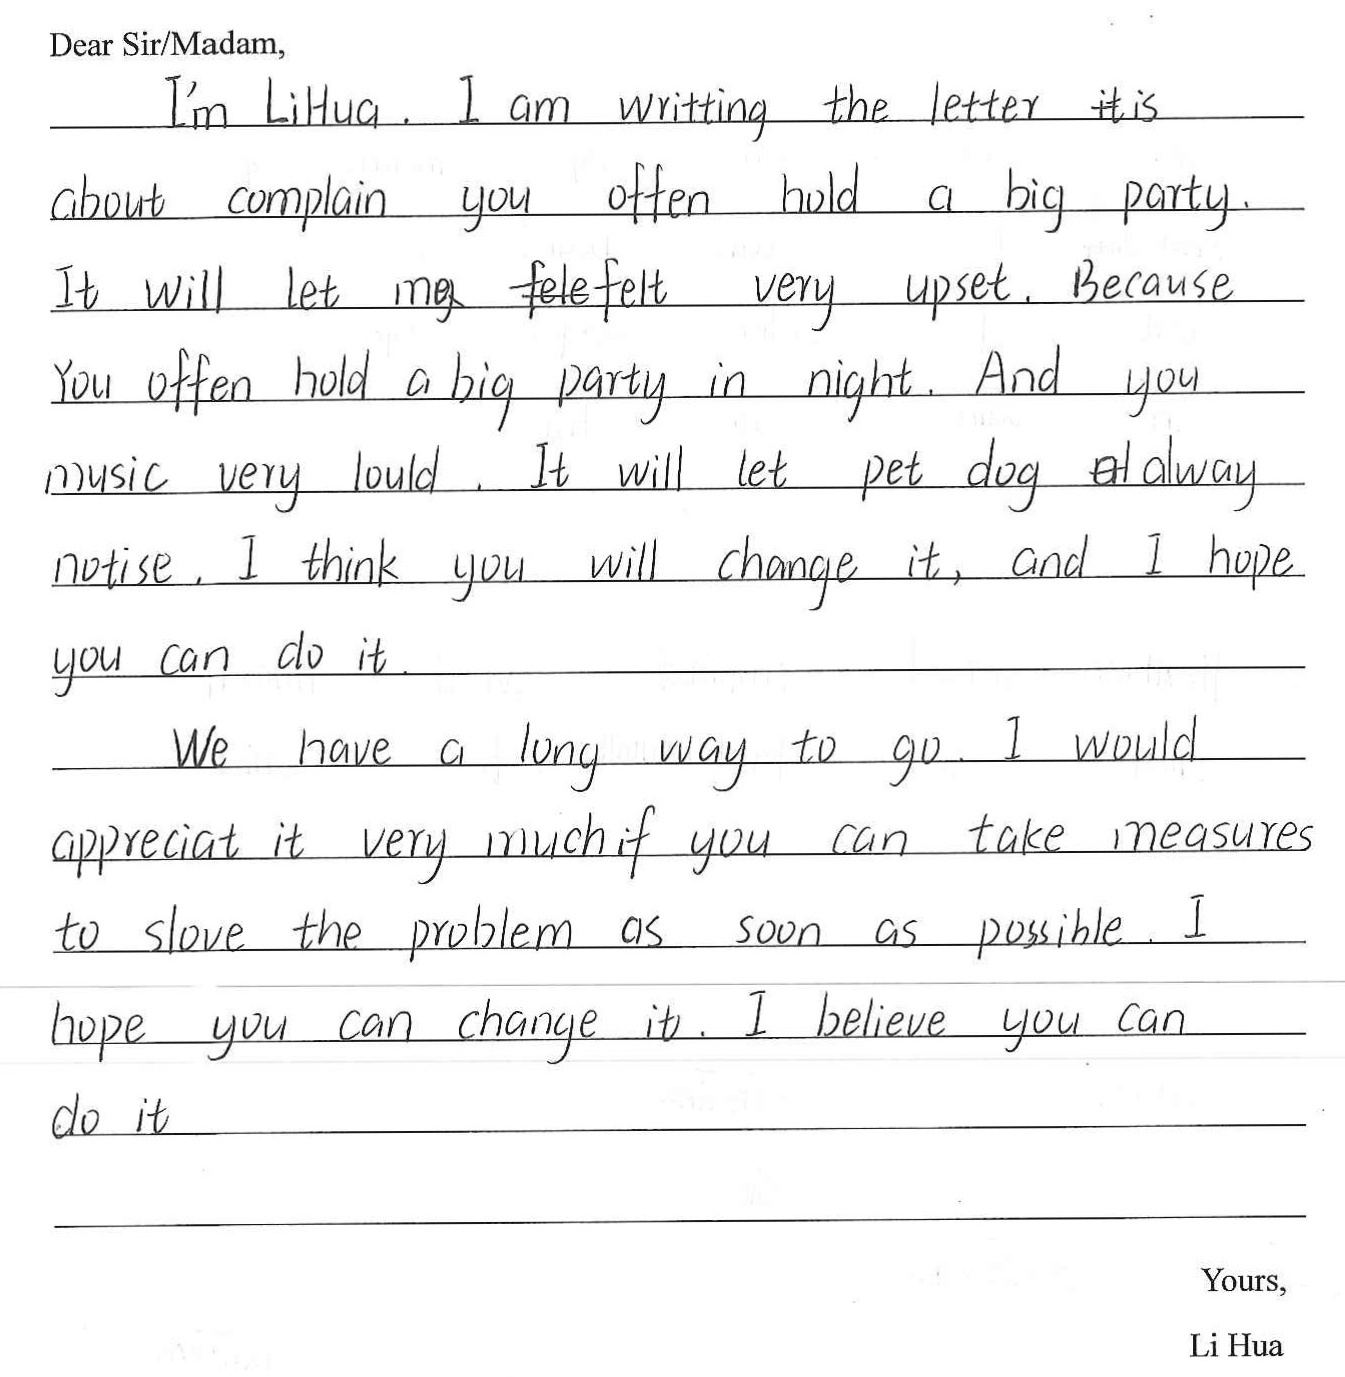 Dear Sir/Madam,
I'm LiHua. I am writting the letter it is
about complain you offen hold a big party.
It will let me fele felt very upset. Because
You offen hold a big party in night. And you
music very lould. It will let pet dog al alway
notise. I think you will change it, and I hope
you can do it.
We have a long way to go. I would
appreciat it very much if you can take measures
to slove the problem as soon as possible. I
hope you can change it. I believe you can
do it
Yours,
Li Hua